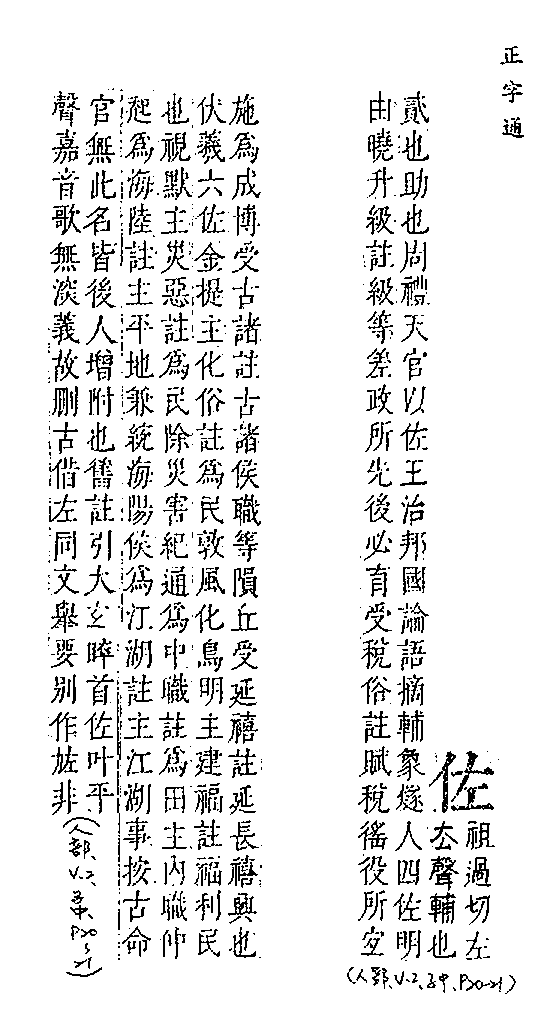 正字通
佐
祖過切左
去聲輔也
貳也助也周禮天官以佐王治邦國論語摘輔象燧人四佐明
由曉升級註級等差政所先後必育受稅俗註賦稅徭役所宜
(人部,V.2,子中,P20-21)
施為成博受古諸註古諸侯職等隕丘受延禧註延長禧興也
伏羲六佐金提主化俗註為民敦風化鳥明主建福註福利民
也視默主災惡註為民除災害紀通為中職註為田主內職仲
起為海陸註主平地兼統海陽侯為江湖註主江湖事按古命
官無此名皆後人增附也舊註引太玄睟首佐叶平
聲嘉音歌無深義故刪古借左同文舉要別作㝾非